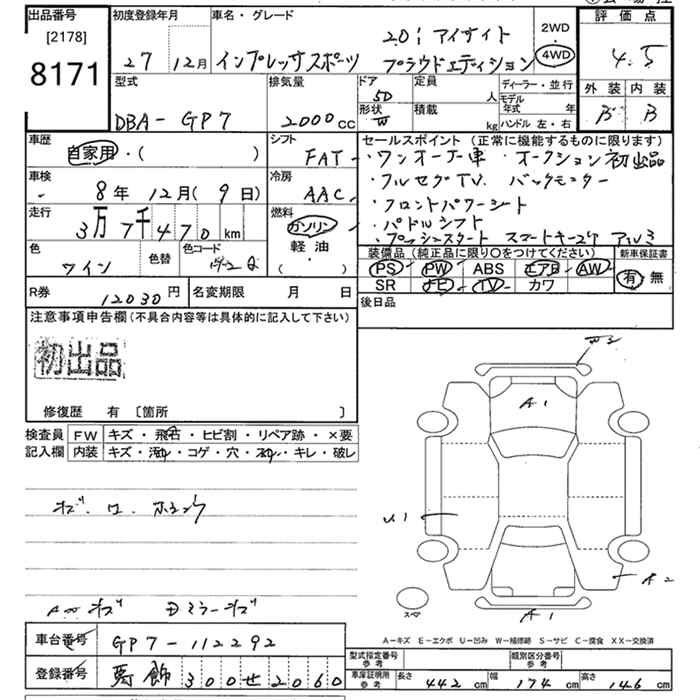 出品番号
[2178]
8171
初度登録年月
27 12月
車名・グレード
インプレッサスポーツ
2.0i アイサイト
プラウドエディション
2WD
4WD
評価点
4.5
外装 内装
B B
型式
DBA-GP7
排気量
2000cc
ドア
5D
形状
定員
人
積載
kg
ディーラー・並行
モデル年式 年
ハンドル 左・右
車歴
自家用・( )
シフト
FAT
車検
8年 12月(9日)
冷房
AAC
走行
3万7千470km
燃料
ガソリン
軽油
( )
色
ワイン
色替
色コード
セールスポイント(正常に機能するものに限ります)
・ワンオーナー車 ・オークション初出品
・フルセグTV. バックモニター
・フロントパワーシート
・パドルシフト
・プッシュスタート スマートキー2ケ アルミ
装備品(純正品に限り○をつけてください)
PS PW ABS エアB AW
SR ナビ TV カワ
新車保証書
有 無
R券
12030円
名変期限 月 日
後日品
注意事項申告欄(不具合内容等は具体的に記入して下さい)
初出品
修復歴 有 〔箇所 〕
検査員記入欄
FW キズ・飛石・ヒビ割・リペア跡・×要
内装 キズ・汚れ・コゲ・穴・スレ・キレ・破レ
A1
U1
A2
A1
スペア
A-キズ E-エクボ U-凹み W-補修跡 S-サビ C-腐食 XX-交換済
車台番号
GP7-112292
登録番号
300せ2060
型式指定番号 参考
類別区分番号 参考
車庫証明用 参考
長さ 442cm
幅 174cm
高さ 146cm